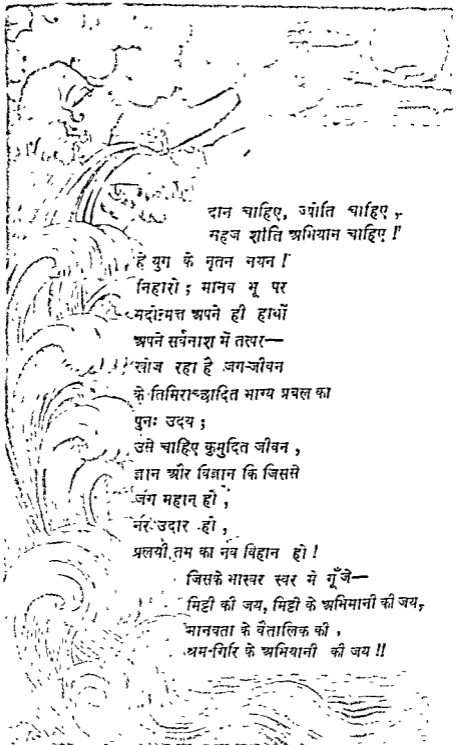 दान चाहिए, ज्योति चाहिए,
महज शांति अभियान चाहिए !
हे युग के नूतन नयन !
निहारो ; मानव भू पर
मदोन्मत्त अपने ही हाथों
अपने सर्वनाश में तत्पर—
खोज रहा है जग-जीवन
के तिमिराच्छादित भाग्य प्रबल का
पुनः उदय ;
उसे चाहिए कुमुदित जीवन ,
ज्ञान और विज्ञान कि जिससे
जग महान् हो ,
नर उदार हो ,
प्रलयी तम का नव विहान हो !
जिसके भास्वर स्वर में गूँजे—
मिट्टी की जय, मिट्टी के अभिमानी की जय,
मानवता के वैतालिक की ,
श्रम-गिरि के अभियानी की जय !!